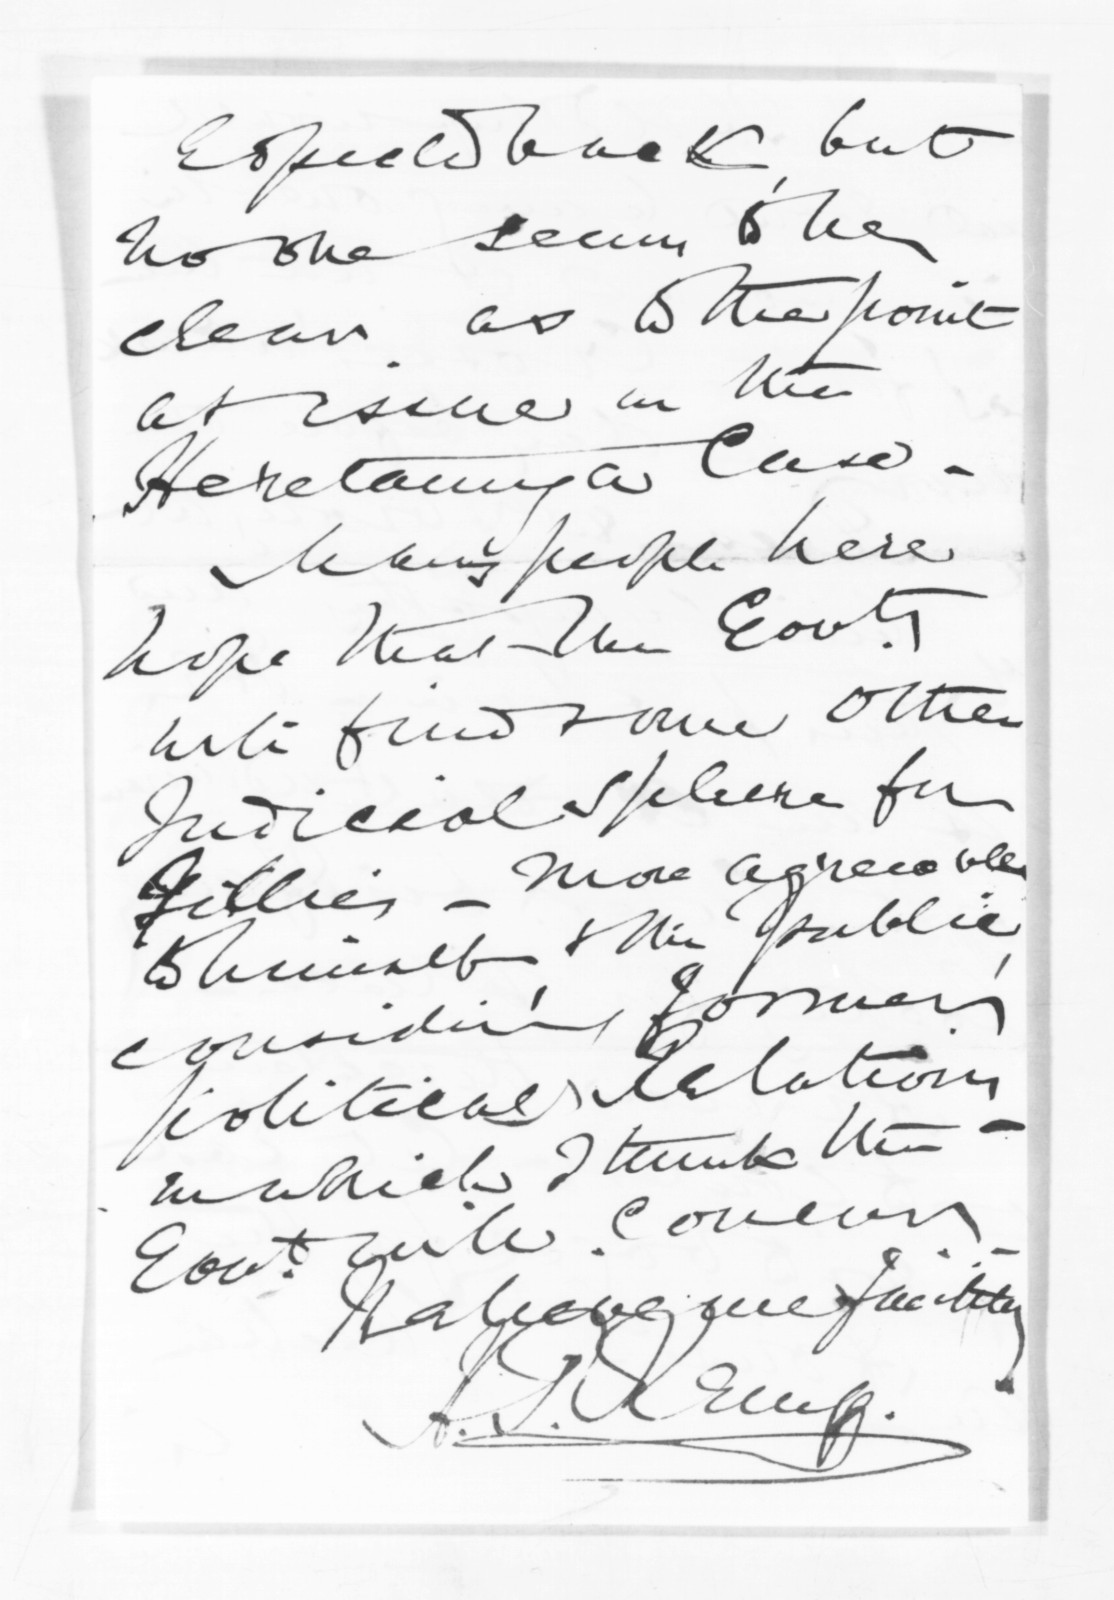 Expected back, but
no one seems to be
clear as to the point
at issue in the
Heretaunga Case -
Many people here
hope that the Govt.
will find some other
Judicial Sphere for
Gillies - more agreeable
to himself & the public
considering former
political Relations
in which I think the -
Govt. will concur. -
Believe me faithfully
H. T. Kemp.